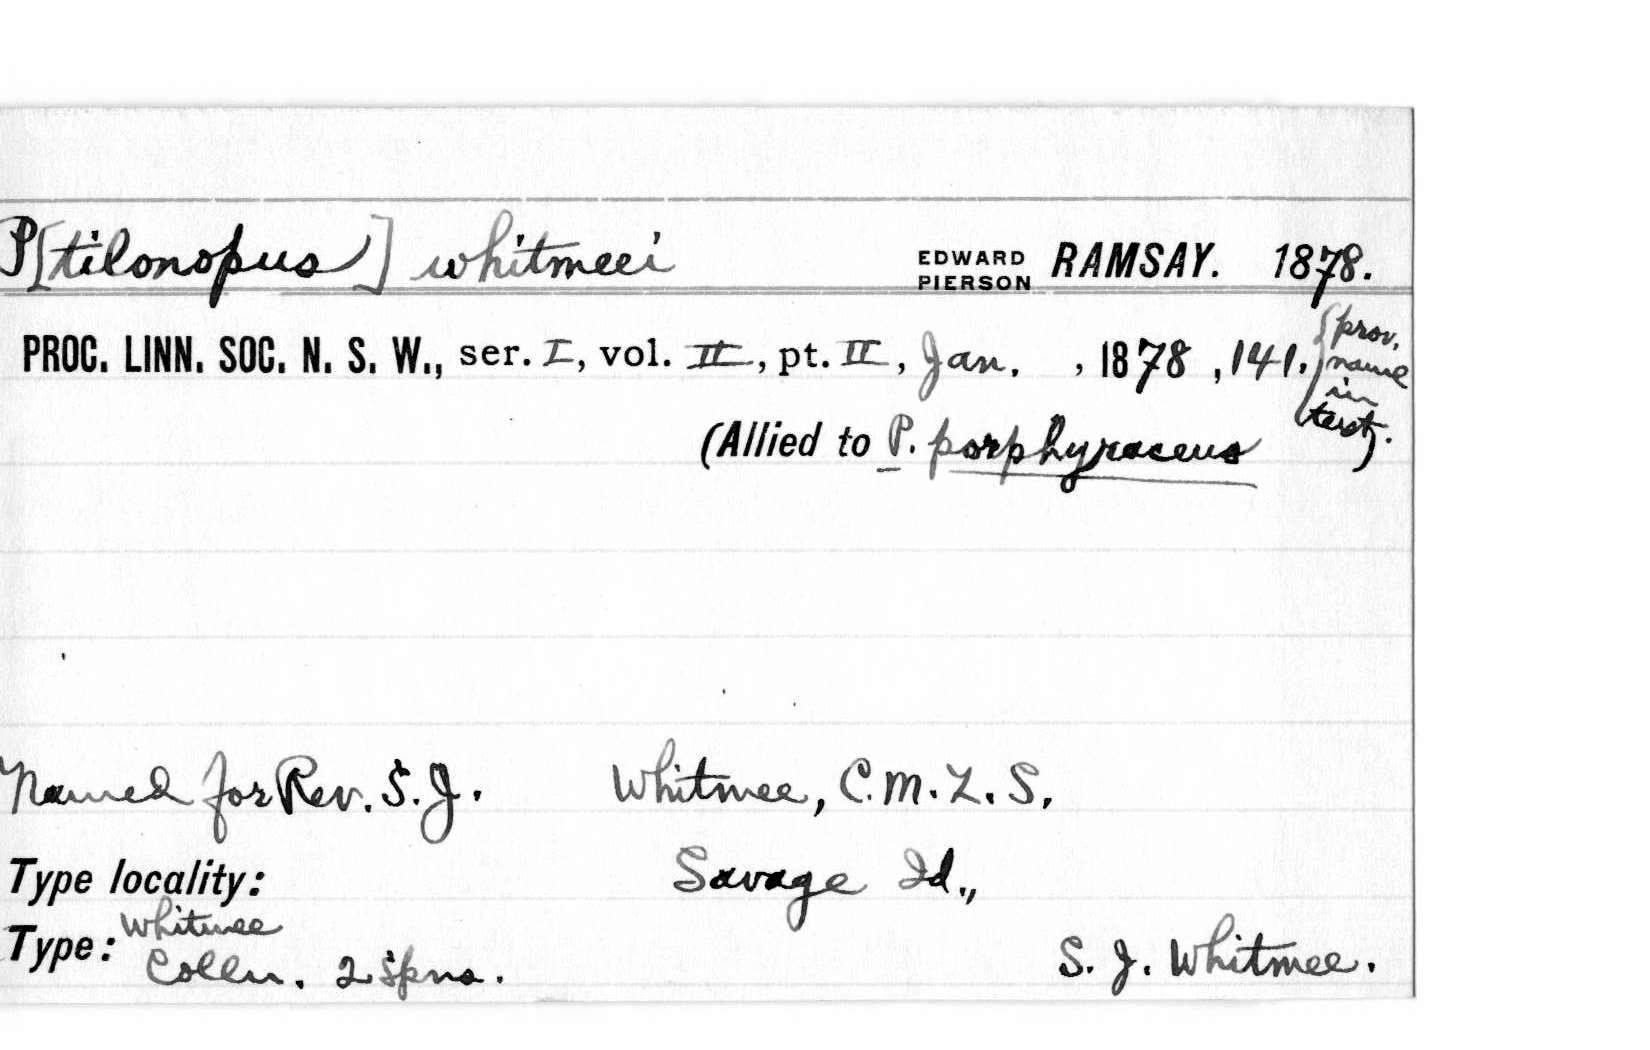 P[tilonopus] whitmeei EDWARD PIERSON RAMSAY. 1878.
PROC. LINN. SOC. N. S. W., ser. I, vol. II, pt. II, Jan. , 1878 , 141. {prov. name in text}.
(Allied to P. porphyraceus)
Named for Rev. S. J. Whitmee, C. M. Z. S.
Type locality: Savage Id.,
Type: Whitmee Colln. 2 spns. S. J. Whitmee.